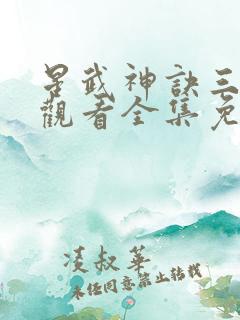 星武神訣三
觀看全集免
凌叔華
未經同意禁止轉載